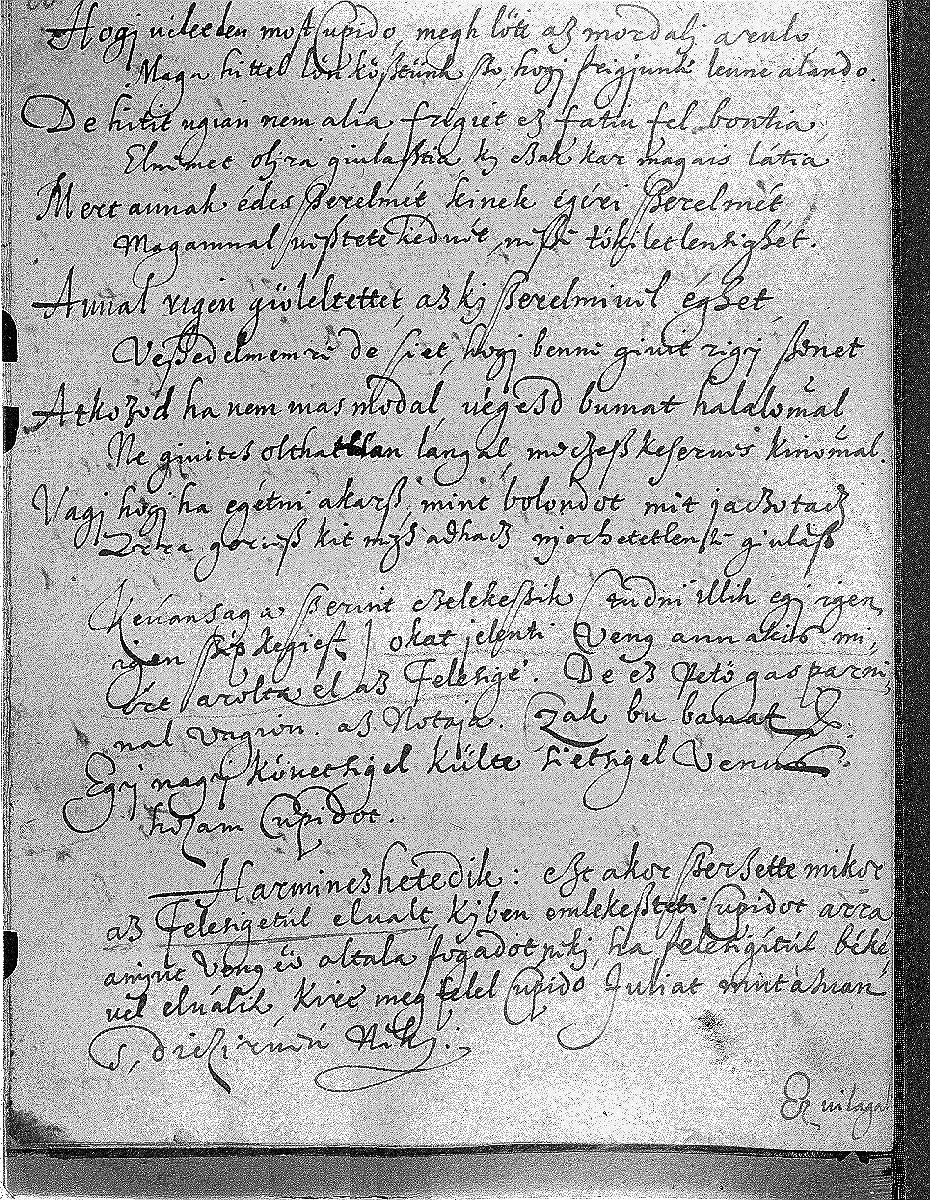 Hogj veletlen most Cupido, megh lött az mordalj arulo
Maga hittel lön köztünk szo, hogj frigjunk lenne alando.
De hitit ugian nem alia frigiet ez fattiu fel bontia,
Elmimet oljra giulasztia, kj csak kar magais látia
Mert annak édes szerelmét kinek égéti szerelmét
Magamnal viszteté kedvét, tökiletlensighét.
Annal rigen giöleltettet, az kj szerelmivil éghet,
Veszedelmemre de siet, hogj benne giuit rigj szenet
Atkozod ha nem mas modal, végezd bumat halalomal
Ne giuits olthatatlan langal, keserues kinomal.
Vagj hogj ha egetni akarsz, mint bolondot mit jaczotacz
Arra geriesz kit megh adhacz giulasz
Kévansaga szerint czelekeszik (tudni illik egj igen,
igen szép kegiest) okat jelenti Veng annakis mi
ért arolta el az Felesige. De ez Petö gasparni,
nal vagion. az Notaja. Czak bu banat &.
Egj nagj követsigel külte sietsigel Venus
hozam Cupidot.
Harminczhetedik: ezt akor szerzette mikor
az Felesigetul elualt, kjben emlekezteti Cupidot arra
amint Veng ö altala fogadot nekj, ha felesigitul béke,
vel elválik, kire meg felel Cupido Juliat mutatuan
s, diczirven Nekj.
Ez vilagal